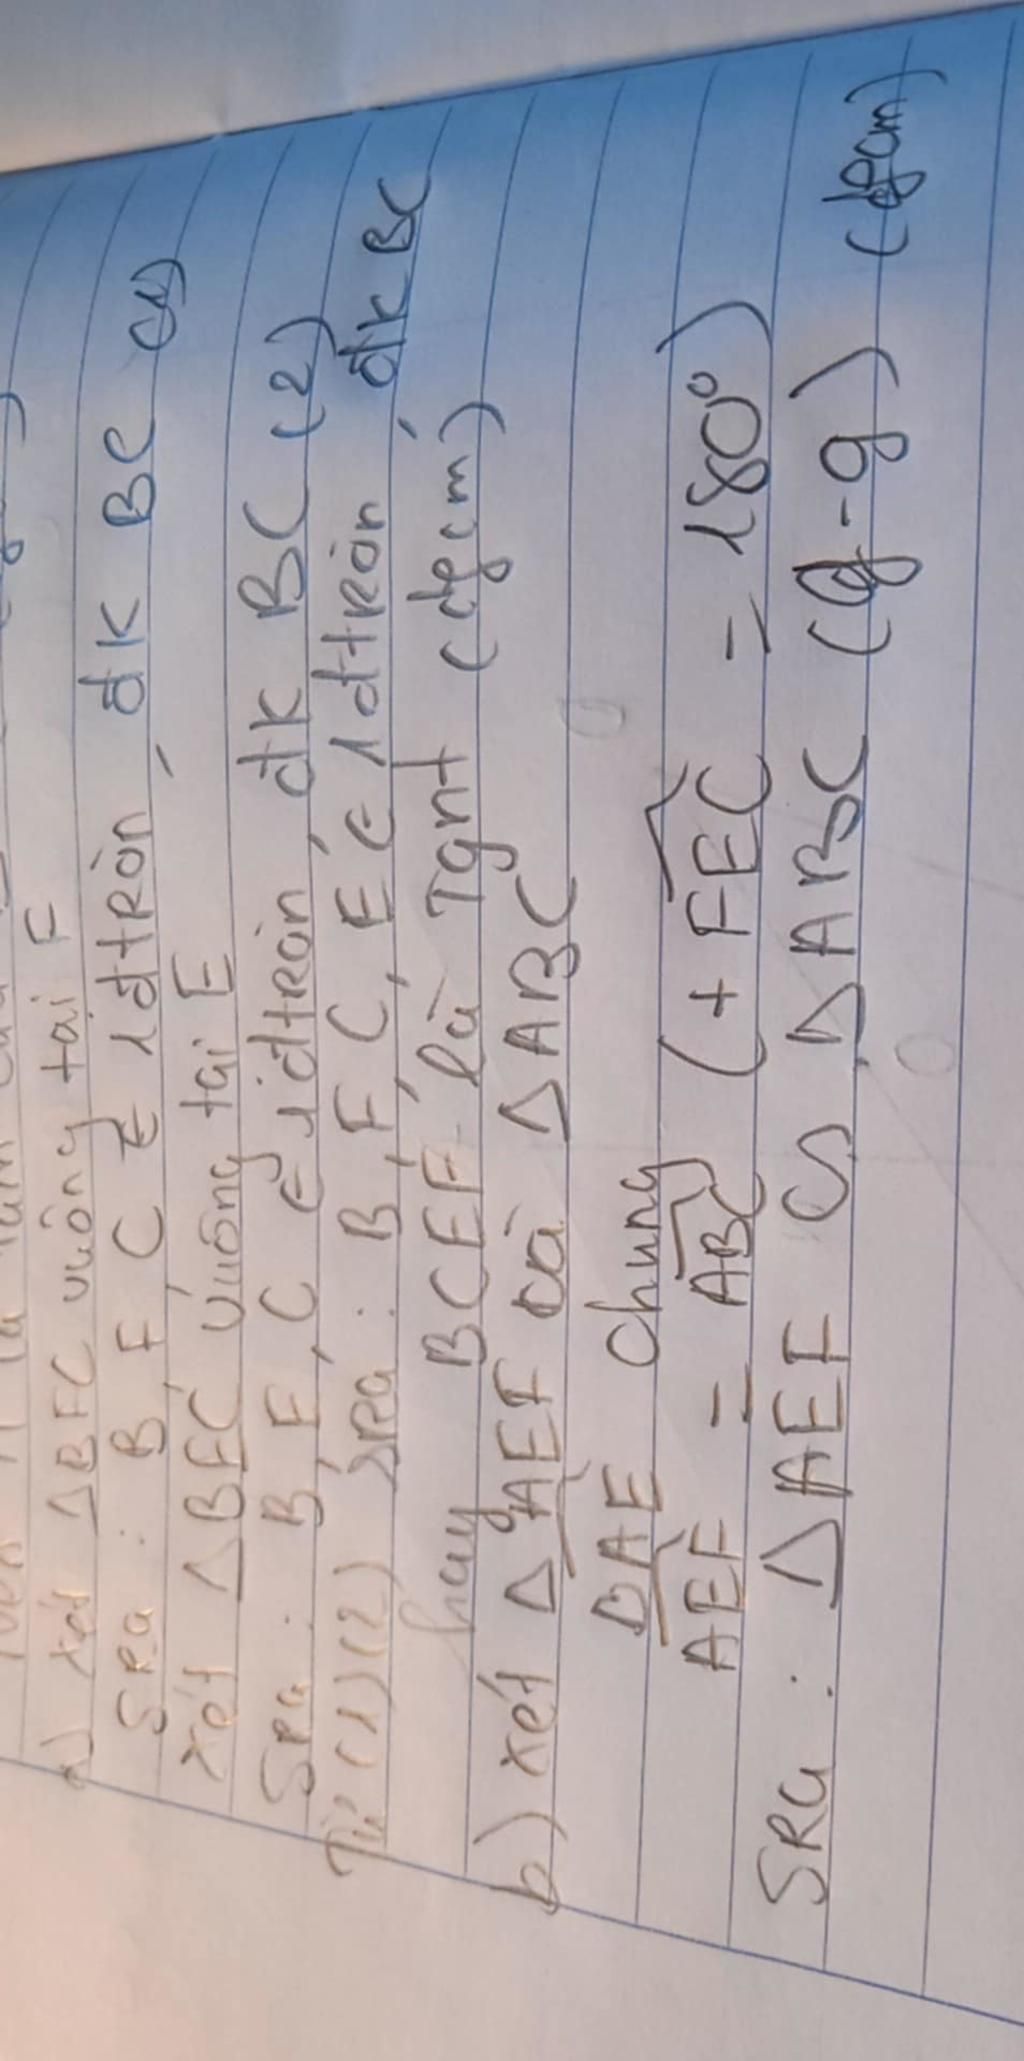 a) xét ΔBFC vuông tại F
SRa : B, F, C ∈ 1 đtRòn đk BC (1)
Xét ΔBEC vuông tại E
SRa : B, E, C ∈ 1 đtRòn đk BC (2)
Từ (1)(2) SRa : B, F, C, E ∈ 1 đtRòn đk BC
hay BCEF là Tgnt (đfcm)
b) xét ΔAEF và ΔABC
BAE chung
AEF = ABC (+ FEC = 180°)
SRa : ΔAEF ∽ ΔABC (g-g) (đfcm)